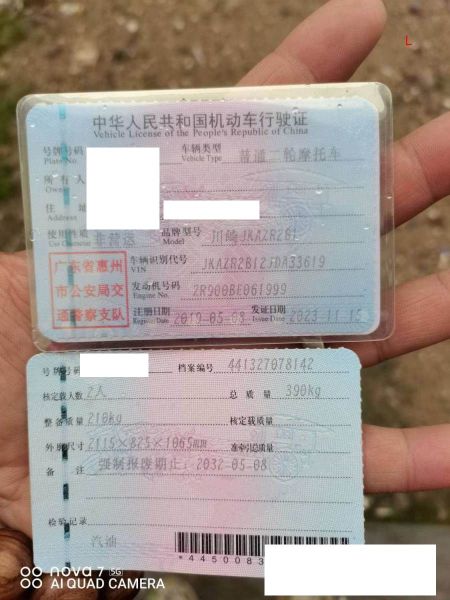 L
中华人民共和国机动车行驶证
Vehicle License of the People's Republic of China
号牌号码 车辆类型 普通二轮摩托车
Plate No. Vehicle Type
所有人
Owner
住址
Address
使用性质 非营运 品牌型号 川崎JKAZR2B1
Use Character Model
广东省惠州
市公安局交
通警察支队
车辆识别代号 JKAZR2B12JDA33619
VIN
发动机号码 ZR900BE061999
Engine No.
注册日期 2019-05-08 发证日期 2023-11-15
Register Date Issue Date
号牌号码 档案编号 441327078142
核定载人数 2人 总质量 390kg
整备质量 210kg 核定载质量
外廓尺寸 2115×825×1065mm 准牵引总质量
备注 强制报废期止:2032-05-08
检验记录
汽油
*4450083
nova 7 5G
AI QUAD CAMERA